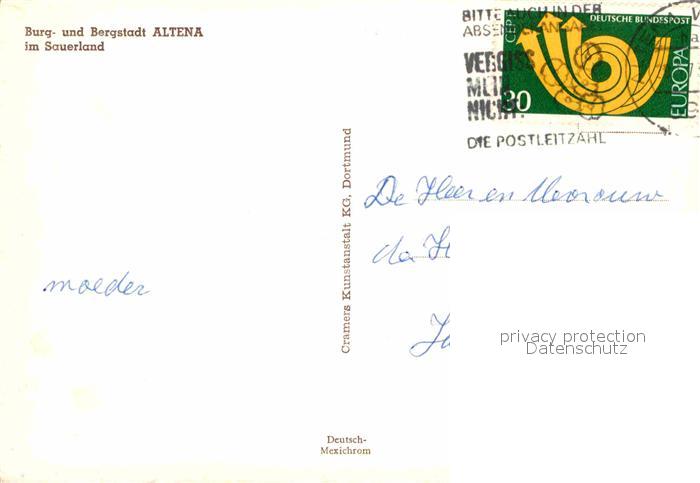 Burg- und Bergstadt ALTENA
im Sauerland
BITTE AUCH IN DER
ABSENDERANGABE
VERGISS
MEIN
NICHT.
DIE POSTLEITZAHL
CEPT
DEUTSCHE BUNDESPOST
30
EUROPA
Cramers Kunstanstalt KG, Dortmund
De Heer en Mevrouw
de
moeder
privacy protection
Datenschutz
Deutsch-
Mexichrom